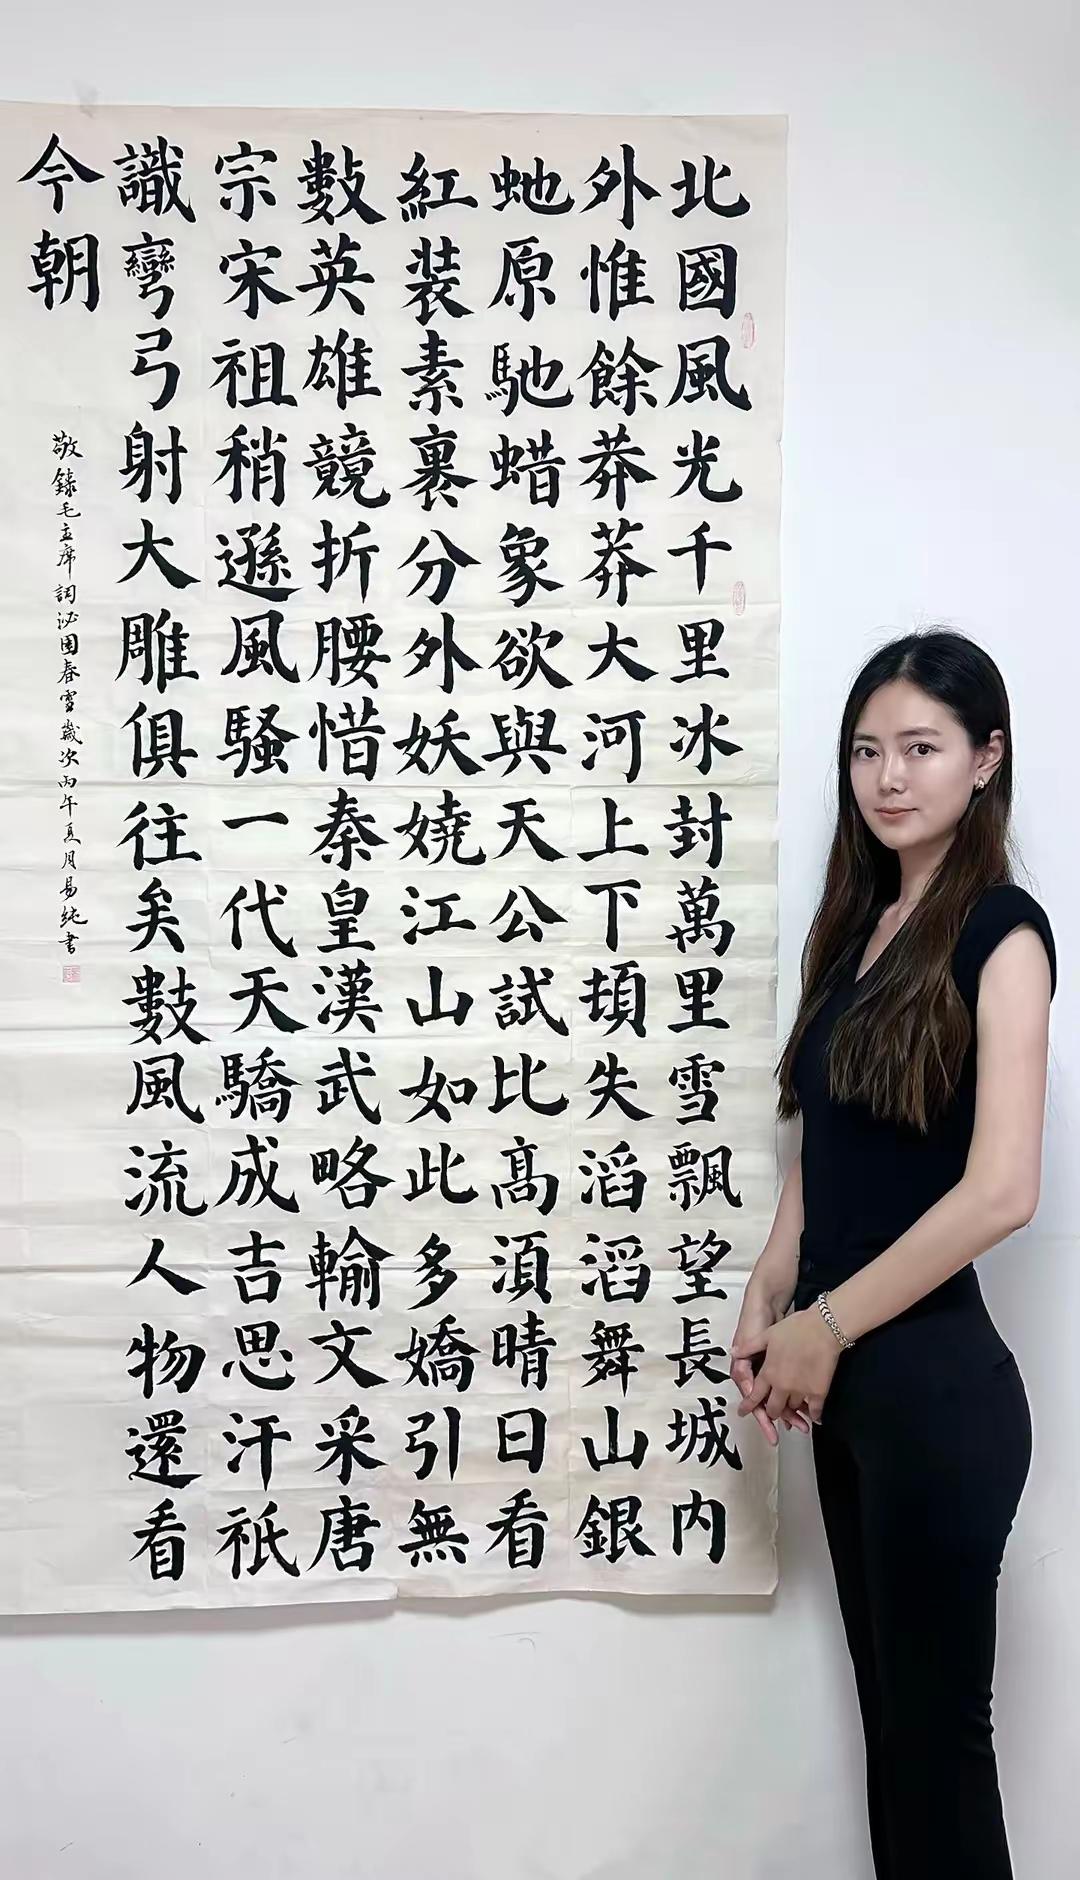 北國風光千里冰封萬里雪飄望長城内
外惟餘莽莽大河上下頓失滔滔舞山銀
虵原馳蜡象欲與天公試比髙湏晴日看
紅装素裹分外妖嬈江山如此多嬌引無
數英雄競折腰惜秦皇漢武略輸文采唐
宗宋祖稍遜風騷一代天驕成吉思汗祇
識彎弓射大雕俱往矣數風流人物還看
今朝
敬錄毛主席詞沁園春雪歲次丙午夏月易純書